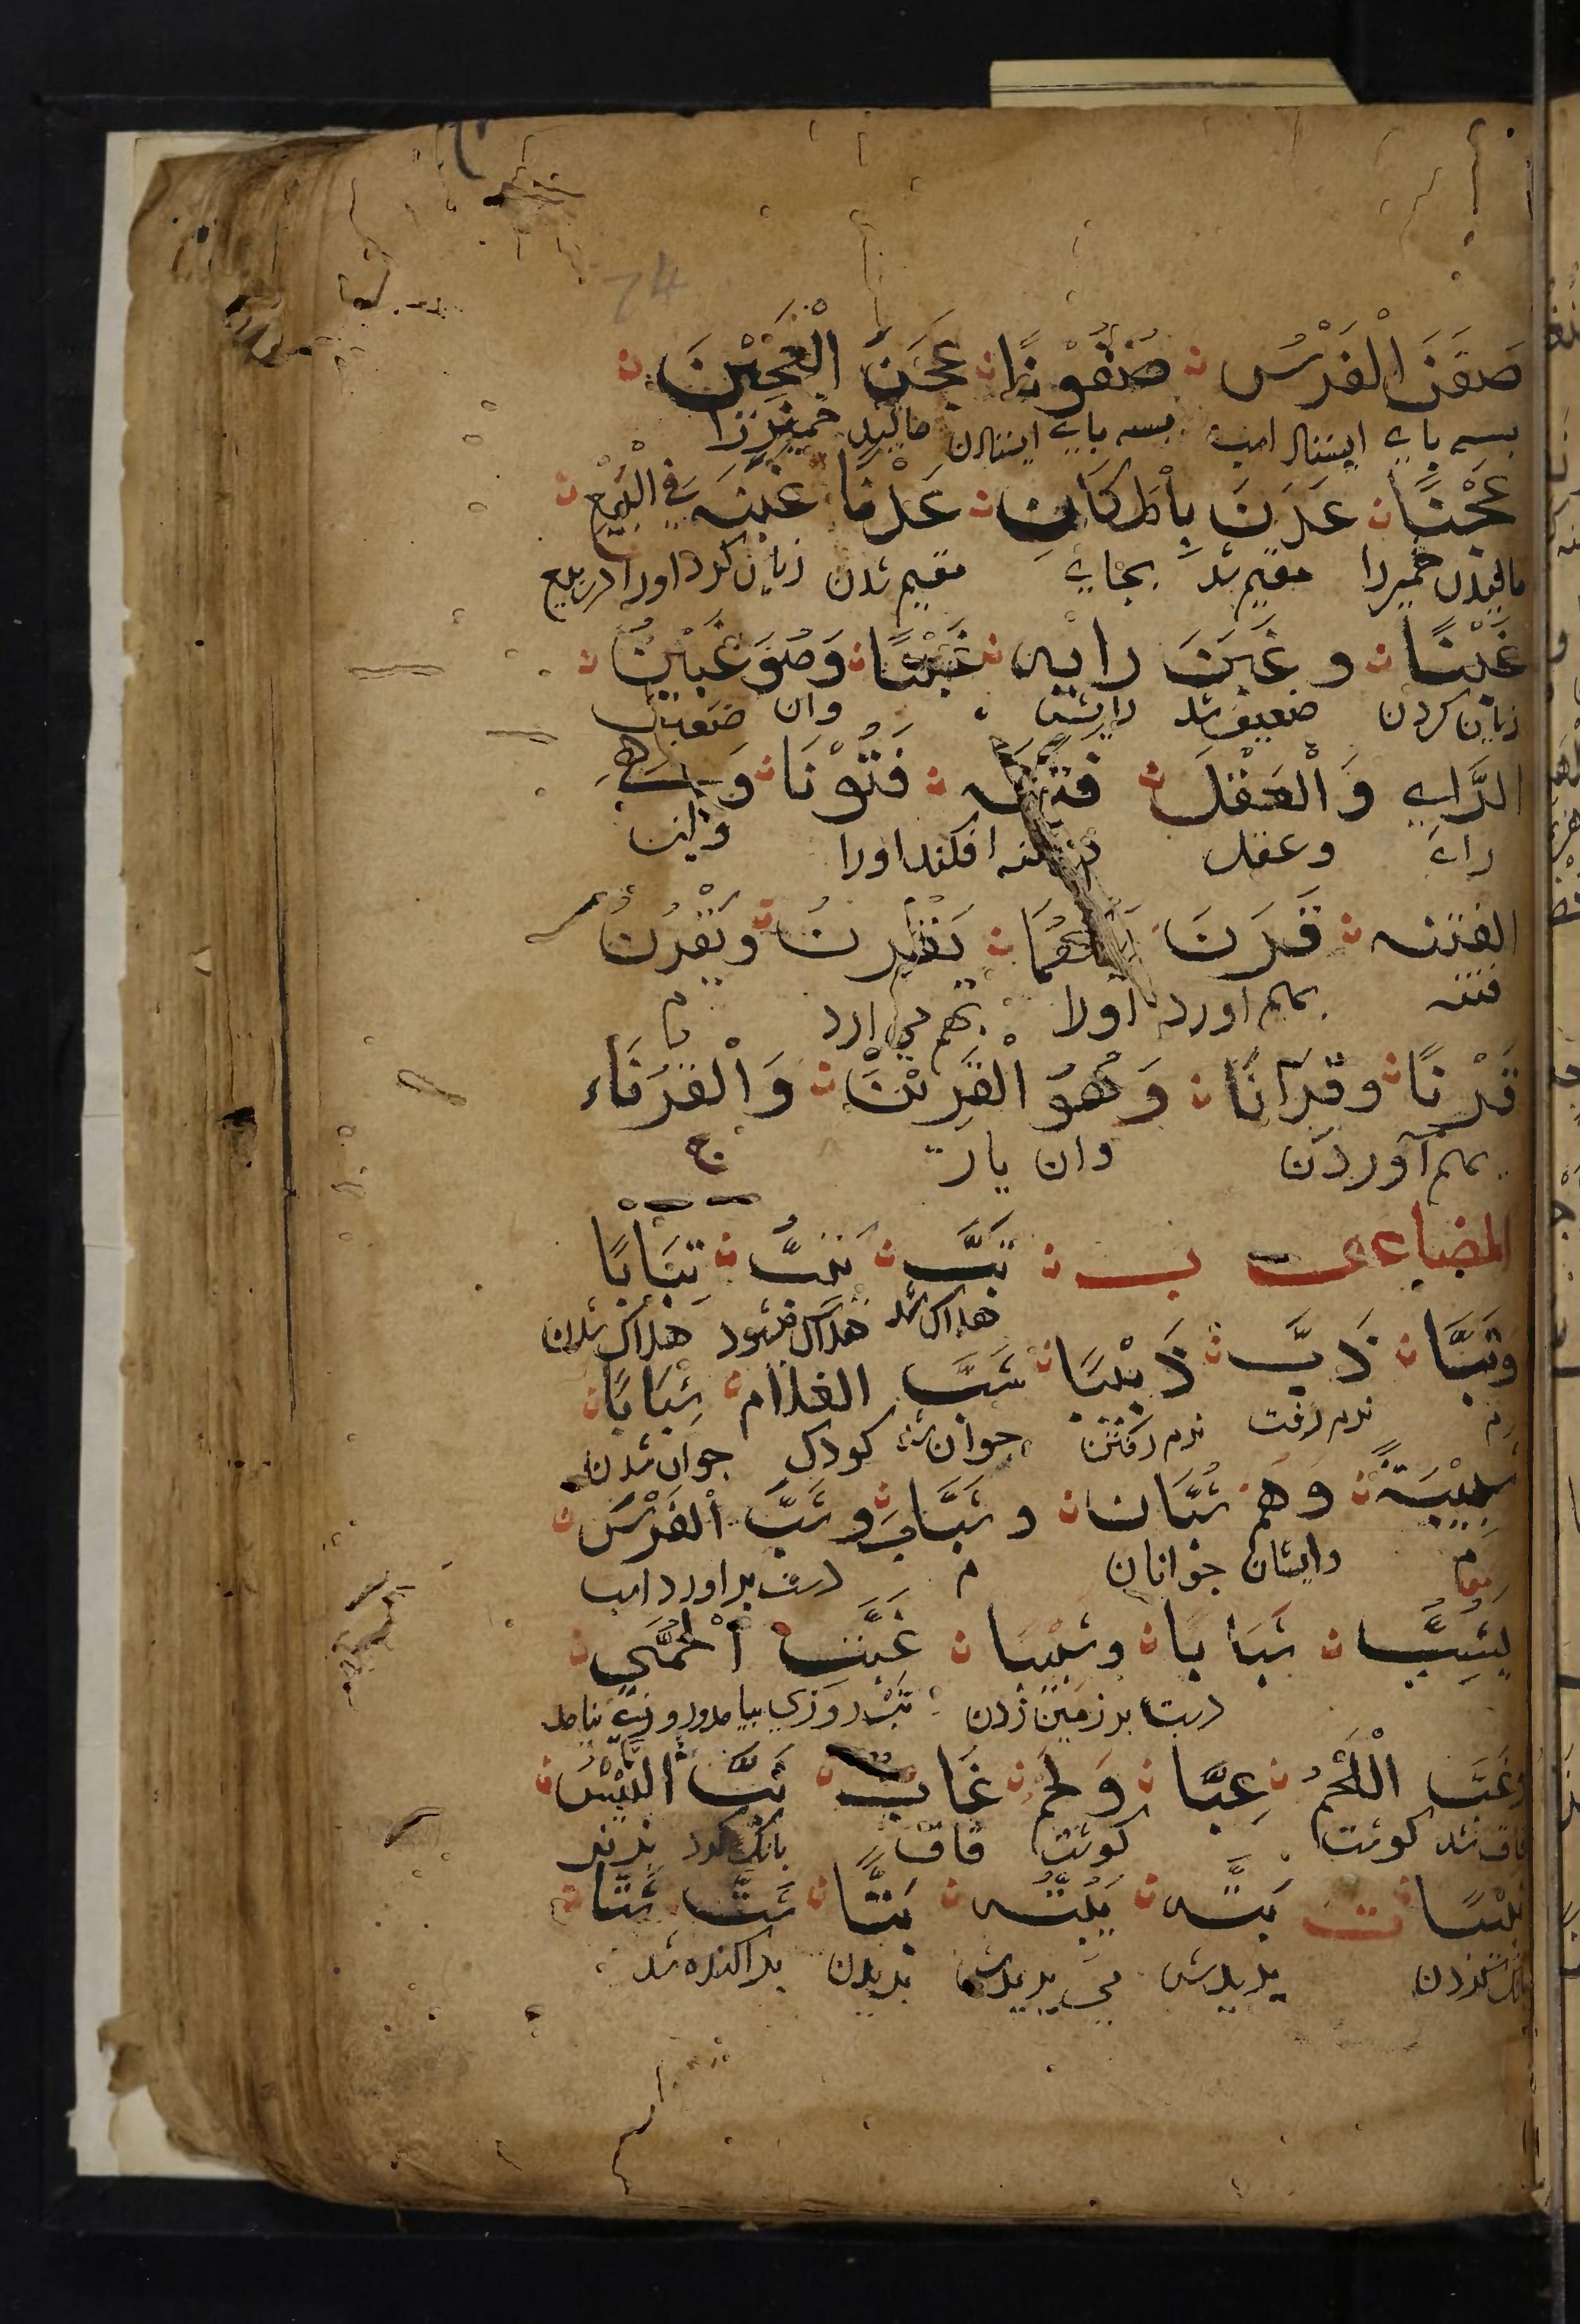 74
صَفَنَ الْفَرَسُ صُفُوْنًا عَجَنَ الْعَجِيْنَ
بسه پاي ايستاد اسب بسه پاي ايستادن ماليد خميررا
عَجْنًا عَدَنَ بِالمَكَانِ عَدْنًا غَبَنَهُ فِي الْبَيْعِ
ماليدن خميررا مقيم شد بجاي مقيم شدن زيان كرد اورا در بيع
غَبْنًا وغَبَنَ رايه غَبَنًا وَهُوَ غَبِيْنُ
زيان كردن ضعيف شد رايش وان ضعيف
الرَّايِ وَالْعَقْلِ فتنه فَتُوْنًا وَهِيَ
راي وعقل فتنه افكند اورا واين
الفتنه قَرَنَ يَقْرِنُ ويَقْرُنُ
فتنه بهم اورد اورا بهم مي ارد
قَرْنًا وقِرَانًا وَهُوَ الْقَرِيْنُ وَالْقُرَنَاء ج
بهم آوردن وان يار
المضاعف ب تَبَّ يَتِبُّ تَبَابًا
هلاك شد هلاك ميشود هلاك شدن
وَتَبًّا دَبَّ دَبِيْبًا شَبَّ الغلام شَبَابًا
م نرم رفت نرم رفتن جوان شد كودك جوان شدن
شَبِيْبَةً وَهُم شُبَّان وشَبَابٌ وشَبَّ الْفَرَسُ
م وايشان جوانان م دست براورد اسب
يَشِبُّ شَبَابًا وشَبِيْبًا غَبَّتِ الْحُمَّي
دست بر زمين زدن تب روزي بيامد وروزي نيامد
وغَبَّ الْلَحْمُ غِبًّا وَلَحْمٌ غَابٌّ نَبَّ التَّيْسُ
قاق شد گوشت گوشت قاق بانگ كرد نر بز
نَبِيْبًا ت بَتَّه يَبُتُّه بَتًّا شَتَّ شَتًّا
بانگ كردن ببريدش مي ببريدش بريدن پراكنده شد